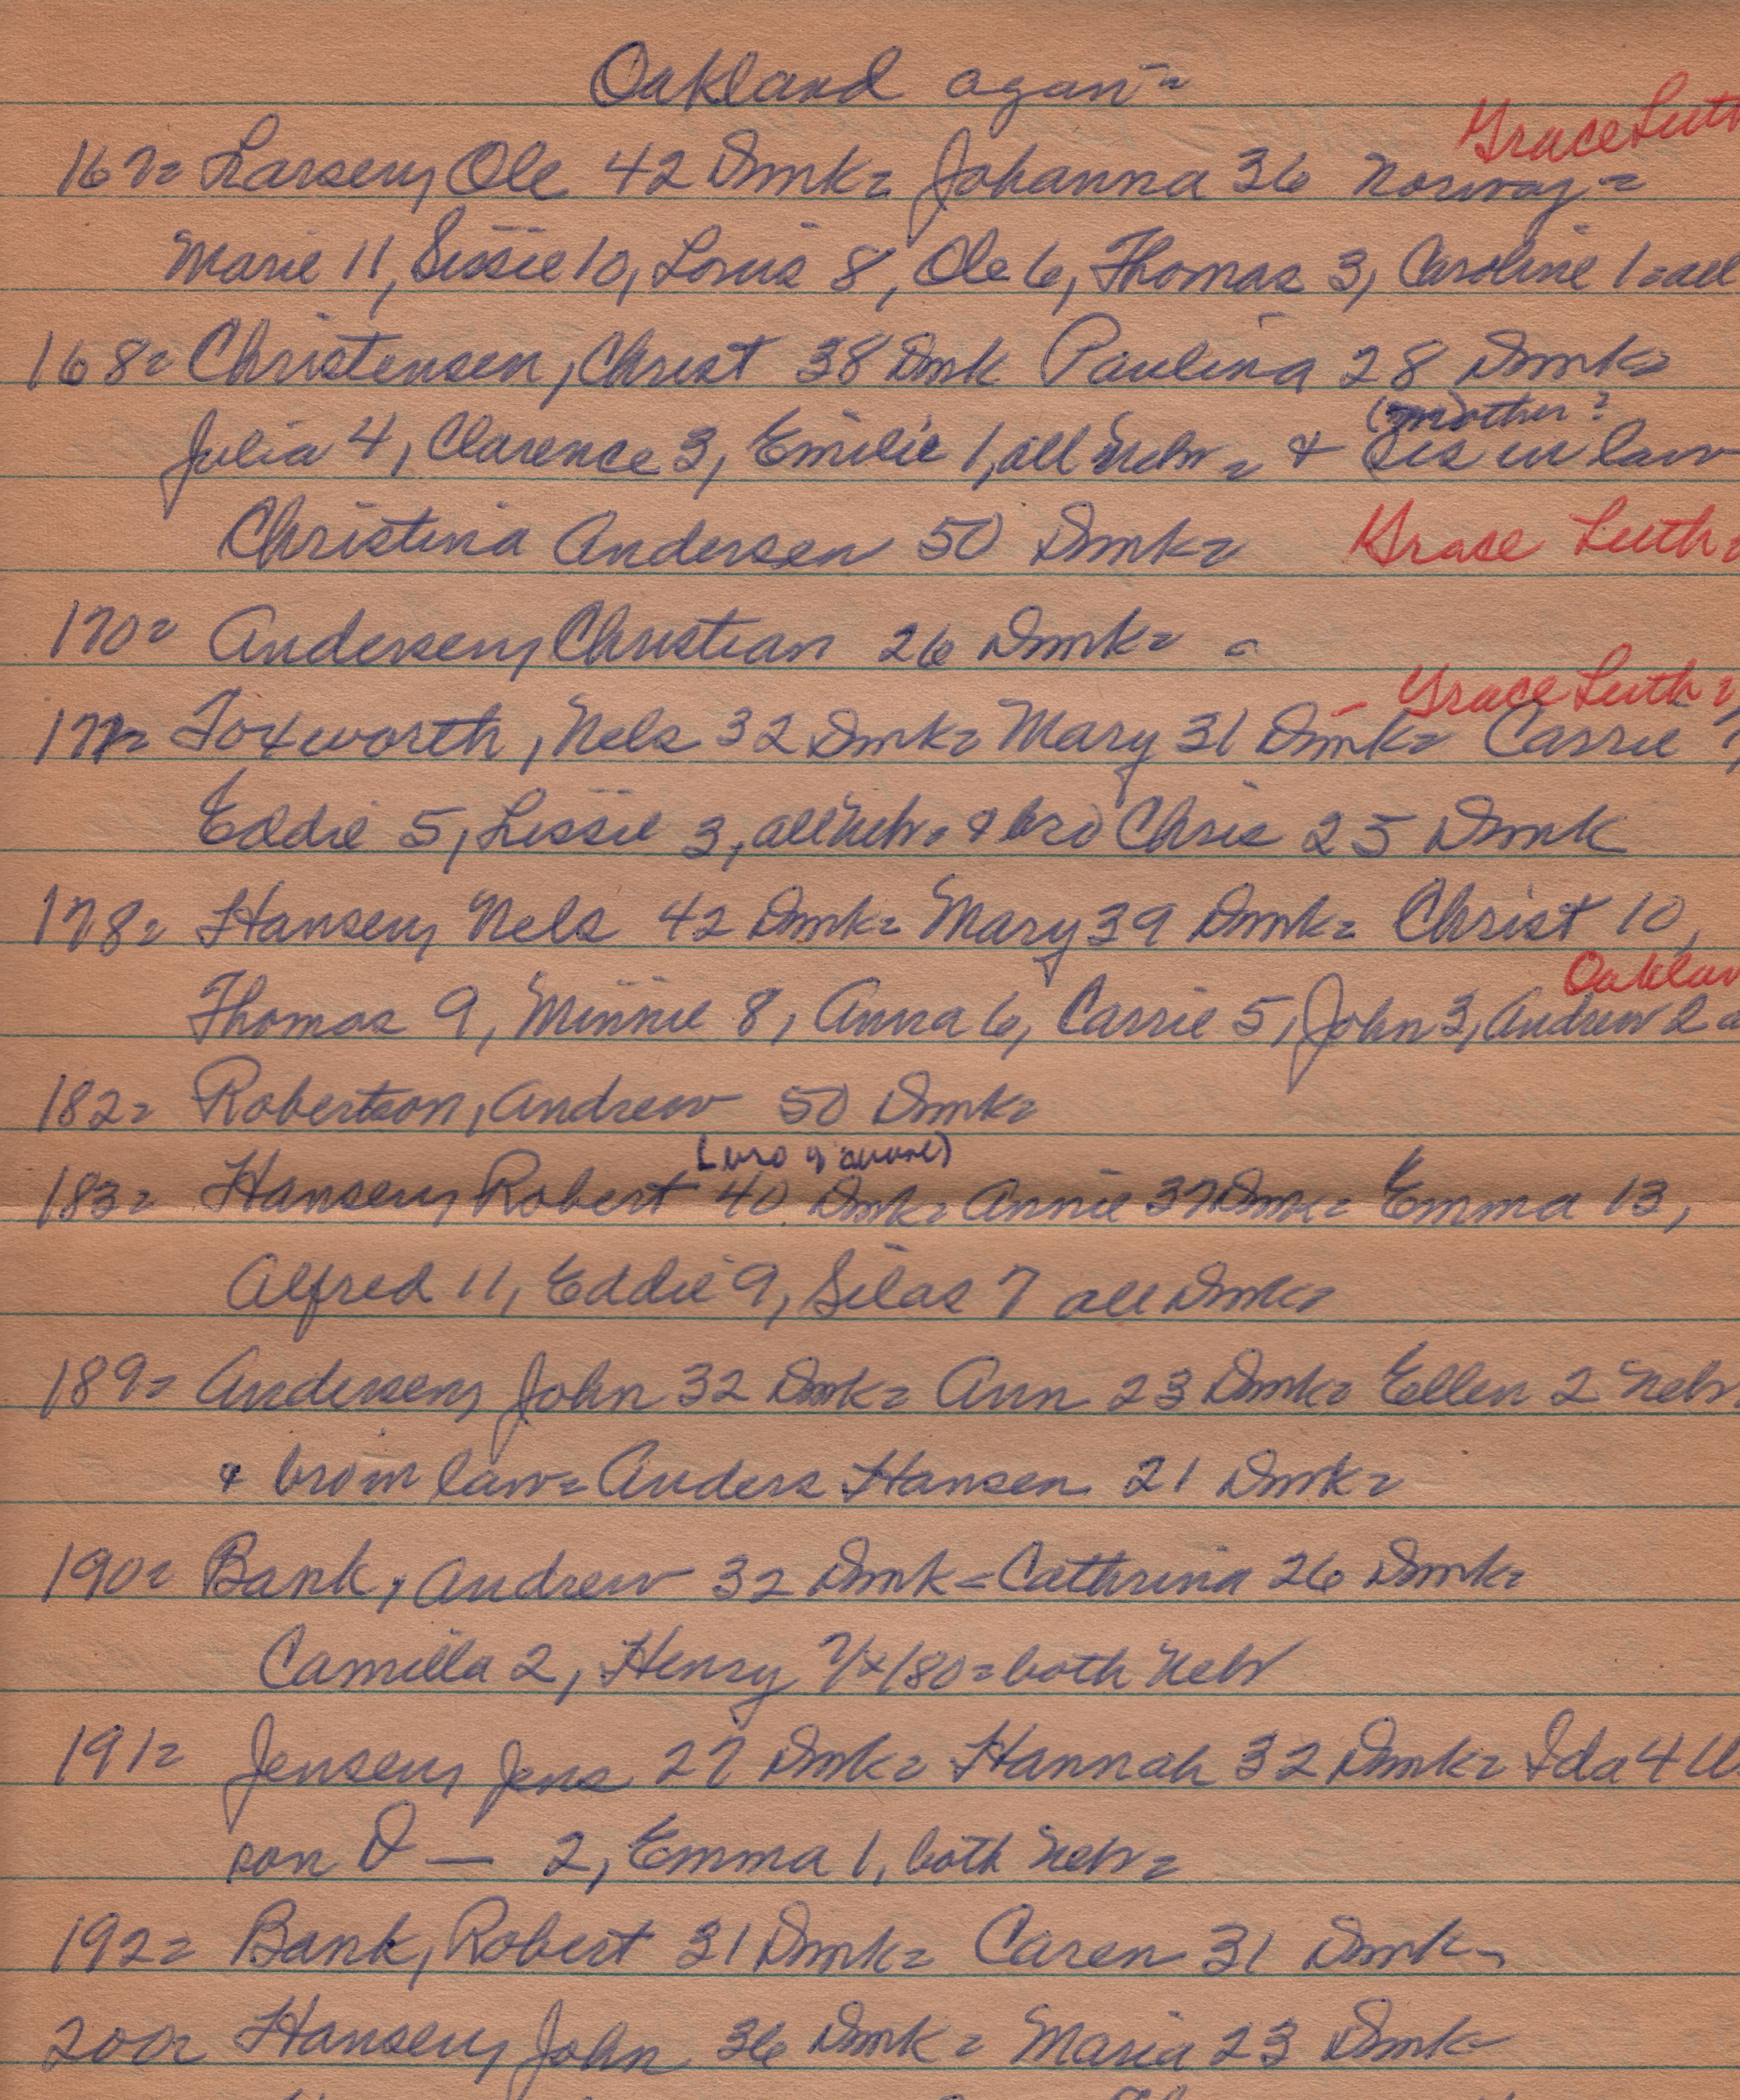 Oakland again =
Grace Luth
167= Larsen, Ole 42 Dmk= Johanna 36 Norway=
Marie 11, Sissie 10, Louis 8, Ole 6, Thomas 3, Caroline 1=all
168= Christensen, Christ 38 Dmk Paulina 28 Dmk=
(mother?
Julia 4, Clarence 3, Emilie 1, all Nebr= & sis in law
Christina Andersen 50 Dmk= Grace Luth=
170= Andersen, Christian 26 Dmk=
- Grace Luth=
Foxworth, Nels 32 Dmk= Mary 31 Dmk= Carrie 7,
Eddie 5, Lissie 3, all Nebr= & bro Chris 25 Dmk
178= Hansen, Nels 42 Dmk= Mary 39 Dmk= Christ 10,
Oaklan
Thomas 9, Minnie 8, Anna 6, Carrie 5, John 3, Andrew 2 a
182= Robertson, Andrew 50 Dmk=
183= Hansen, Robert 40 Dmk= Annie 37 Dmk= Emma 13,
Alfred 11, Eddie 9, Silas 7 all Dmk=
189= Andersen, John 32 Dmk= Ann 23 Dmk= Ellen 2 Nebr
& bro in law= Anders Hansen 21 Dmk=
190= Bank, Andrew 32 Dmk= Cathrina 26 Dmk=
Camilla 2, Henry both Nebr
191= Jensen, Jens 27 Dmk= Hannah 32 Dmk= Ida 4
son O — 2, Emma 1, both Nebr=
192= Bank, Robert 31 Dmk= Caren 31 Dmk-
200= Hansen, John 36 Dmk= Maria 23 Dmk-